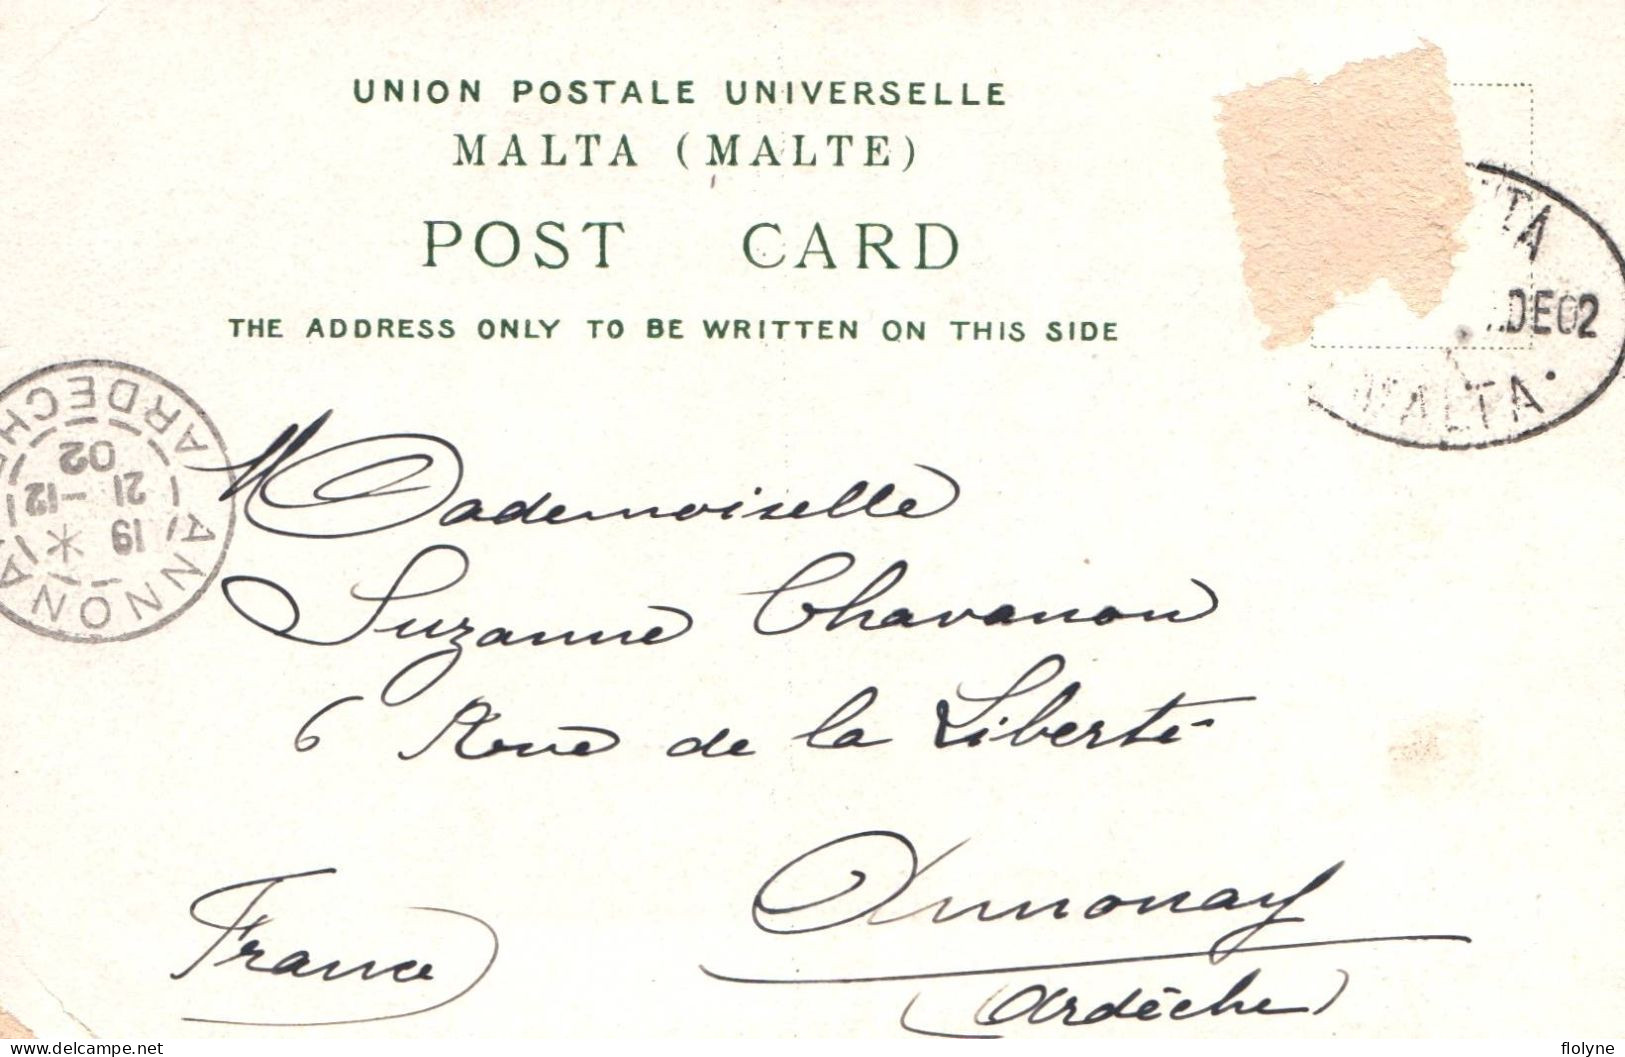 UNION POSTALE UNIVERSELLE
MALTA (MALTE)
POST CARD
THE ADDRESS ONLY TO BE WRITTEN ON THIS SIDE
DE02
MALTA
ARDECHE
02
21 -12
19 *
ANNONA
Mademoiselle
Suzanne Chavanon
6 Rue de la Liberté
Annonay
(Ardèche)
France
delcampe.net
flolyne